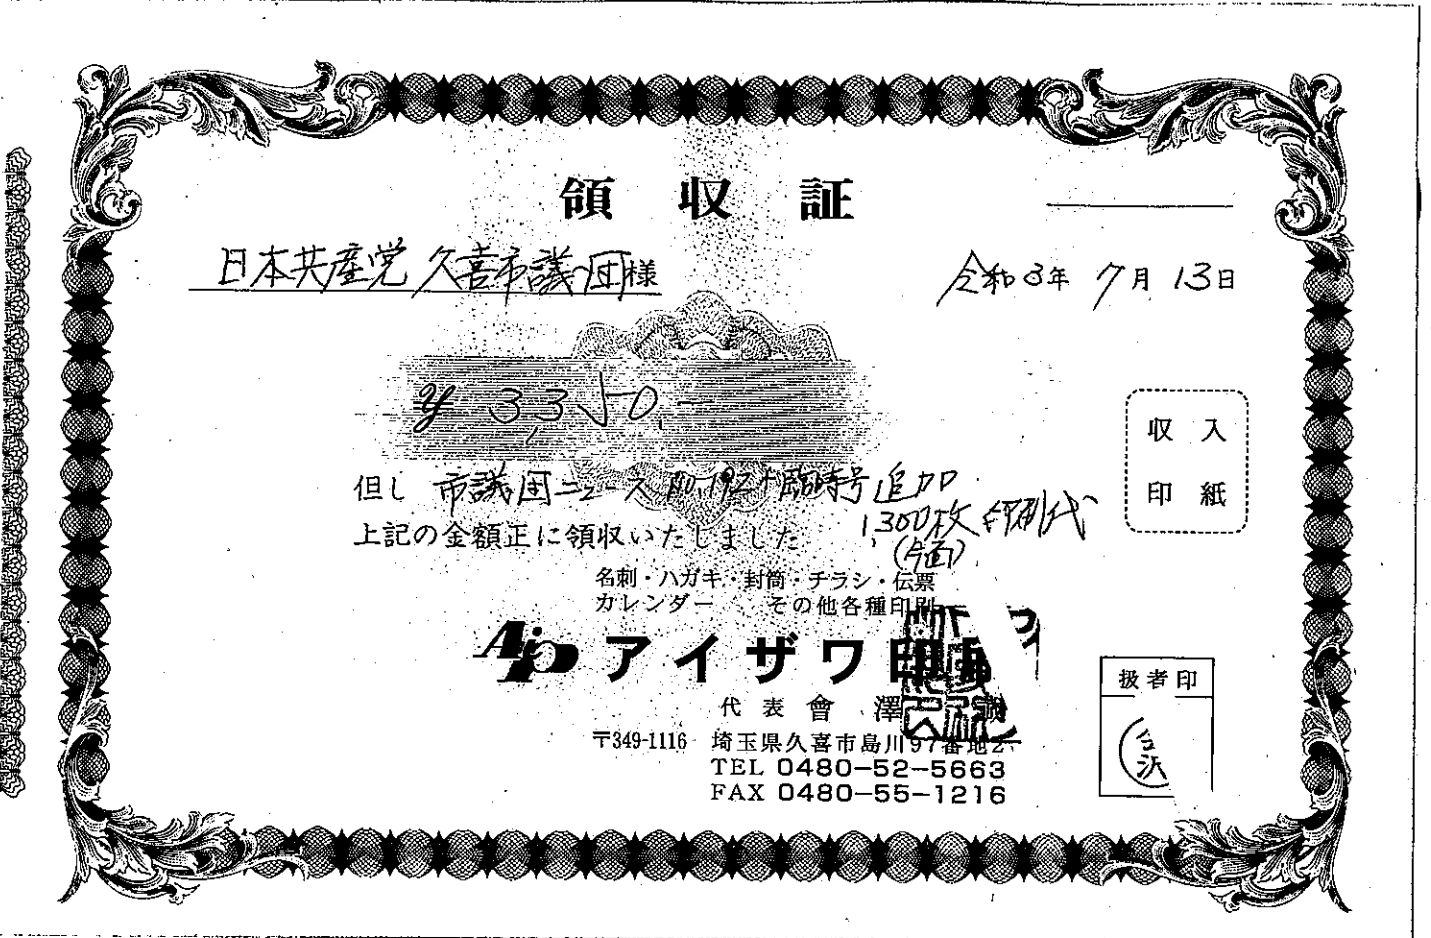 領収証
日本共産党 久喜市議団様
令和3年 7月 13日
¥ 3,350.-
収入
印紙
但し 市議団ニュース No.192+臨時号追加
1,300枚 印刷代
上記の金額正に領収いたしました
(片面)
名刺・ハガキ・封筒・チラシ・伝票
カレンダー その他各種印刷
Aip アイザワ印刷
代表 會澤
〒349-1116 埼玉県久喜市島川97番地2
TEL 0480-52-5663
FAX 0480-55-1216
扱者印